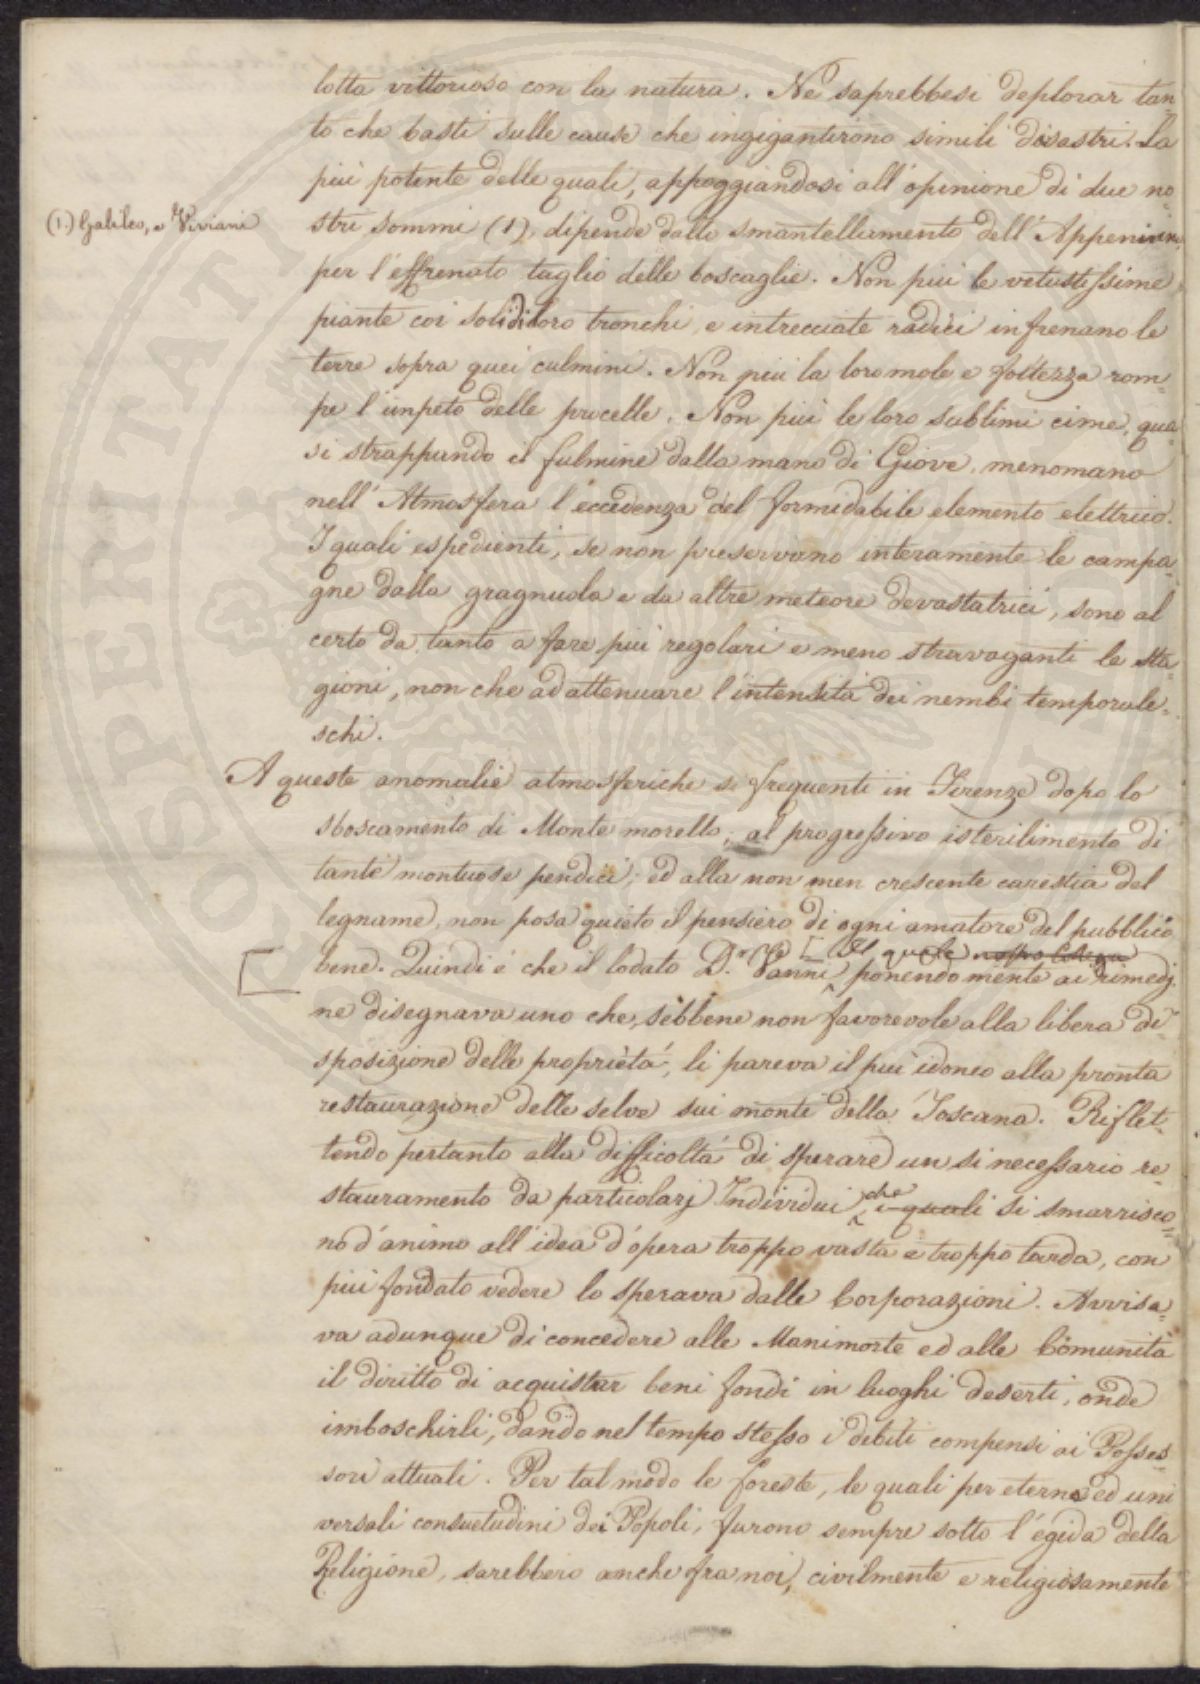 lotta vittorioso con la natura. Ne saprebbesi deplorar tan
to che basti sulle cause che ingigantirono simili disastri. La
piú potente delle quali, appoggiandosi all'opinione di due no=
(1.) Galileo, e Viviani
stri sommi (1), dipende dallo smantellamento dell'Appennino,
per l'effrenato taglio delle boscaglie. Non piú le vetustissime
piante coi solidi loro tronchi, e intrecciate radici infrenano le
terre sopra quei culmini. Non piú la loro mole e foltezza rom=
pe l'impeto delle procelle. Non piú le loro sublimi cime, qua=
si strappando il fulmine dalla mano di Giove, menomano
nell'Atmosfera l'eccedenza del formidabile elemento elettrico.
I quali espedienti, se non preservano interamente le campa=
gne dalla gragnuola e da altre meteore devastatrici, sono al
certo da tanto a fare piú regolari e meno stravaganti le sta=
gioni, non che ad attenuare l'intensitá dei nembi temporale=
schi.
A queste anomalie atmosferiche si frequenti in Firenze dopo lo
sboscamento di Monte morello; al progressivo isterilimento di
tante montuose pendici; ed alla non men crescente carestia del
legname, non posa quieto il pensiero di ogni amatore del pubblico
bene. Quindi é che il lodato D.r Vanni [Il quale nostro Collega ponendo mente ai rimedj
ne disegnava uno che, sebbene non favorevole alla libera di=
sposizione delle proprietá, li pareva il piu idoneo alla pronta
restaurazione delle selve sui monti della Toscana. Riflet=
tendo pertanto alla difficoltá di sperare un si necessario re=
stauramento da particolarj Individui, che i quali si smarrisco=
no d'animo all'idea d'opera troppo vasta e troppo tarda, con
piú fondato vedere lo sperava dalle Corporazioni. Avvisa=
va adunque di concedere alle Manimorte ed alle Comunità
il diritto di acquistar beni fondi in luoghi deserti, onde
imboschirli, dando nel tempo stesso i debiti compensi ai Posses=
sori attuali. Per tal modo le foreste, le quali per eterne ed uni
versali consuetudini dei Popoli, furono sempre sotto l'égida della
Religione, sarebbero anche fra noi, civilmente e religiosamente